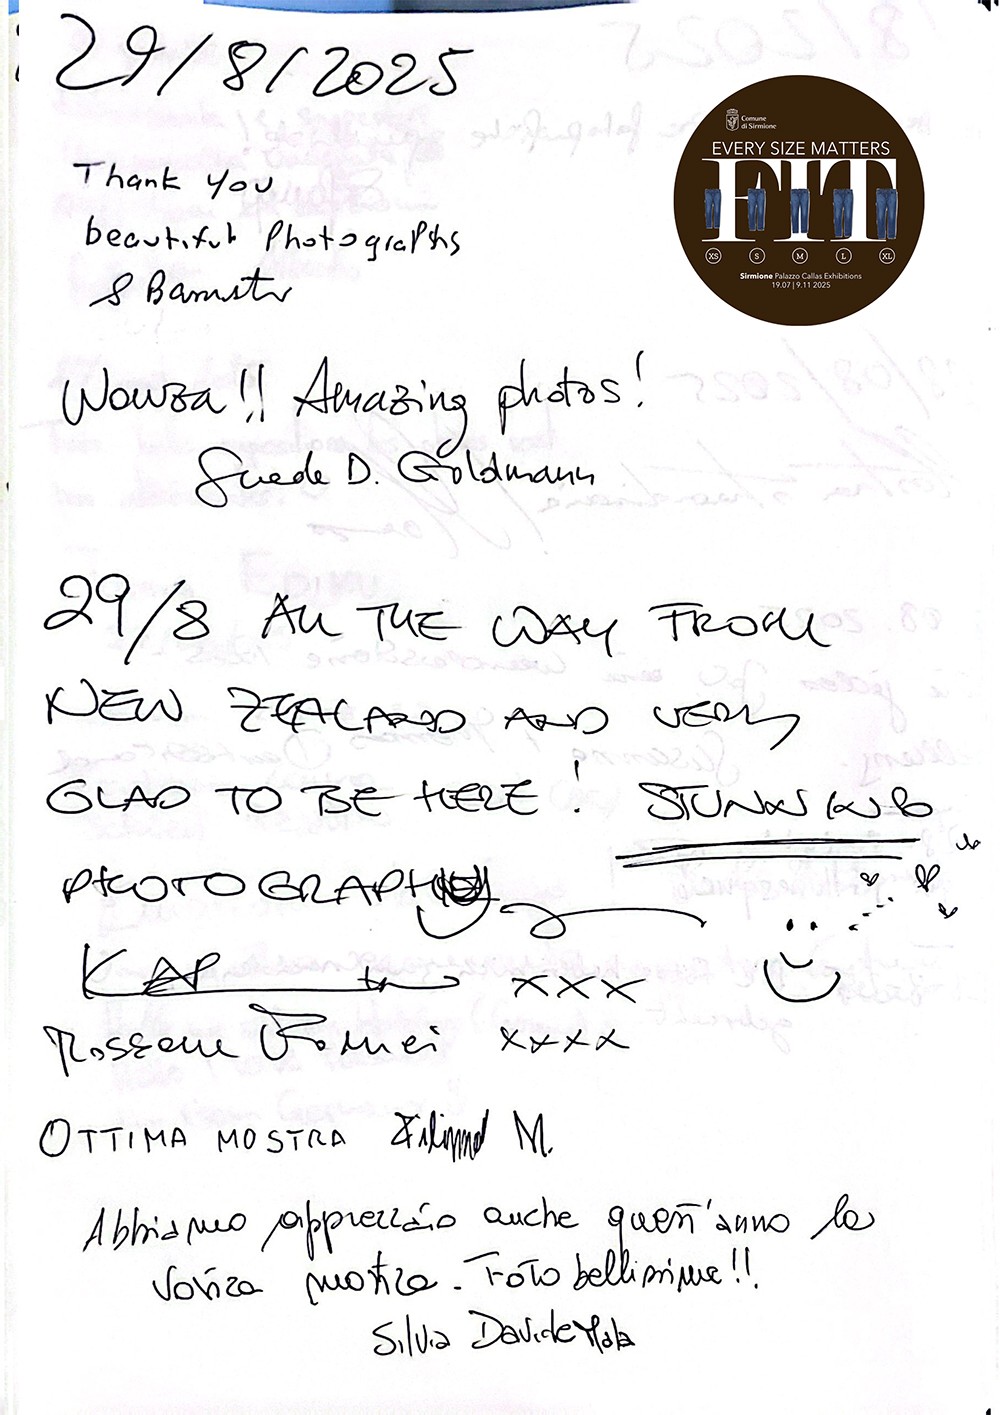 29/8/2025
Comune
di Sirmione
EVERY SIZE MATTERS
FIT
XS S M L XL
Sirmione Palazzo Callas Exhibitions
19.07 | 9.11 2025
Thank you
beautiful Photographs
S
Wowza!! Amazing photos!
Suede D. Goldmann
29/8 ALL THE WAY FROM
NEW ZEALAND AND VERY
GLAD TO BE HERE! STUNNING
xxx
xxxx
OTTIMA MOSTRA M.
Abbiamo apprezzato anche quest'anno la
vostra mostra. Foto bellissime!!
Silvia Davide